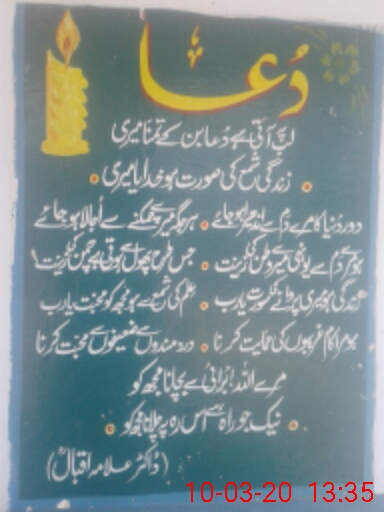 دُعا
لب پہ آتی ہے دُعا بن کے تمنا میری
زندگی شمع کی صورت ہو خدایا میری
دور دنیا کا مرے دم سے اندھیرا ہو جائے • ہر جگہ میرے چمکنے سے اُجالا ہو جائے
ہو مرے دم سے یونہی میرے وطن کی زینت • جس طرح پھول سے ہوتی ہے چمن کی زینت
زندگی ہو مری پروانے کی صورت یارب • علم کی شمع سے ہو مجھ کو محبت یارب
ہو مرا کام غریبوں کی حمایت کرنا • درد مندوں سے ضعیفوں سے محبت کرنا
مرے اللہ! بُرائی سے بچانا مجھ کو
نیک جو راہ ہے اس رہ پہ چلانا مجھ کو
(ڈاکٹر علامہ اقبالؒ)
10-03-20 13:35